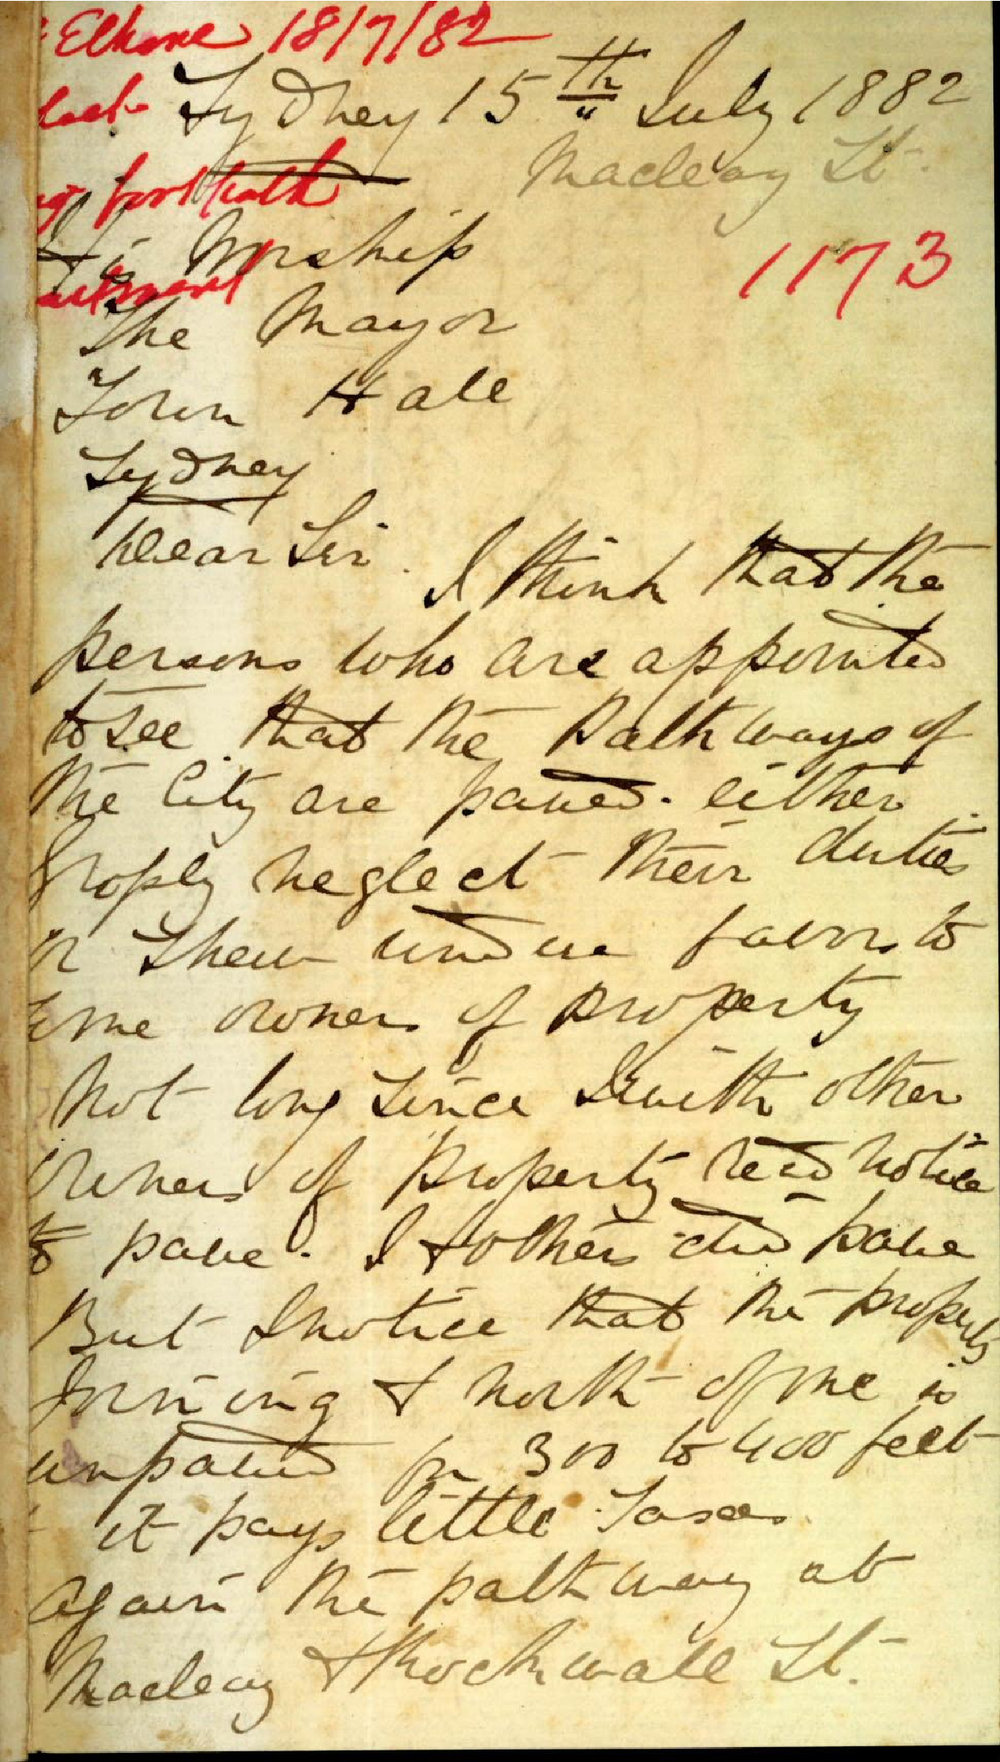 Elkone 18/7/82
Sydney 15th July 1882
Macleay St.
footpath
His Worship
1173
The Mayor
Town Hall
Sydney
Dear Sir.
I think that the
persons who are appointed
to see that the Pathways of
the City are paved. either
grossly neglect their duties
or shew undue favor to
some owners of property
Not long since I with other
owners of property recd notice
to pave. I & others did pave
But I notice that the property
Joining & north of me is
unpaved for 300 to 400 feet
it pays little Taxes
again the pathway at
Macleay & Rockwall St.